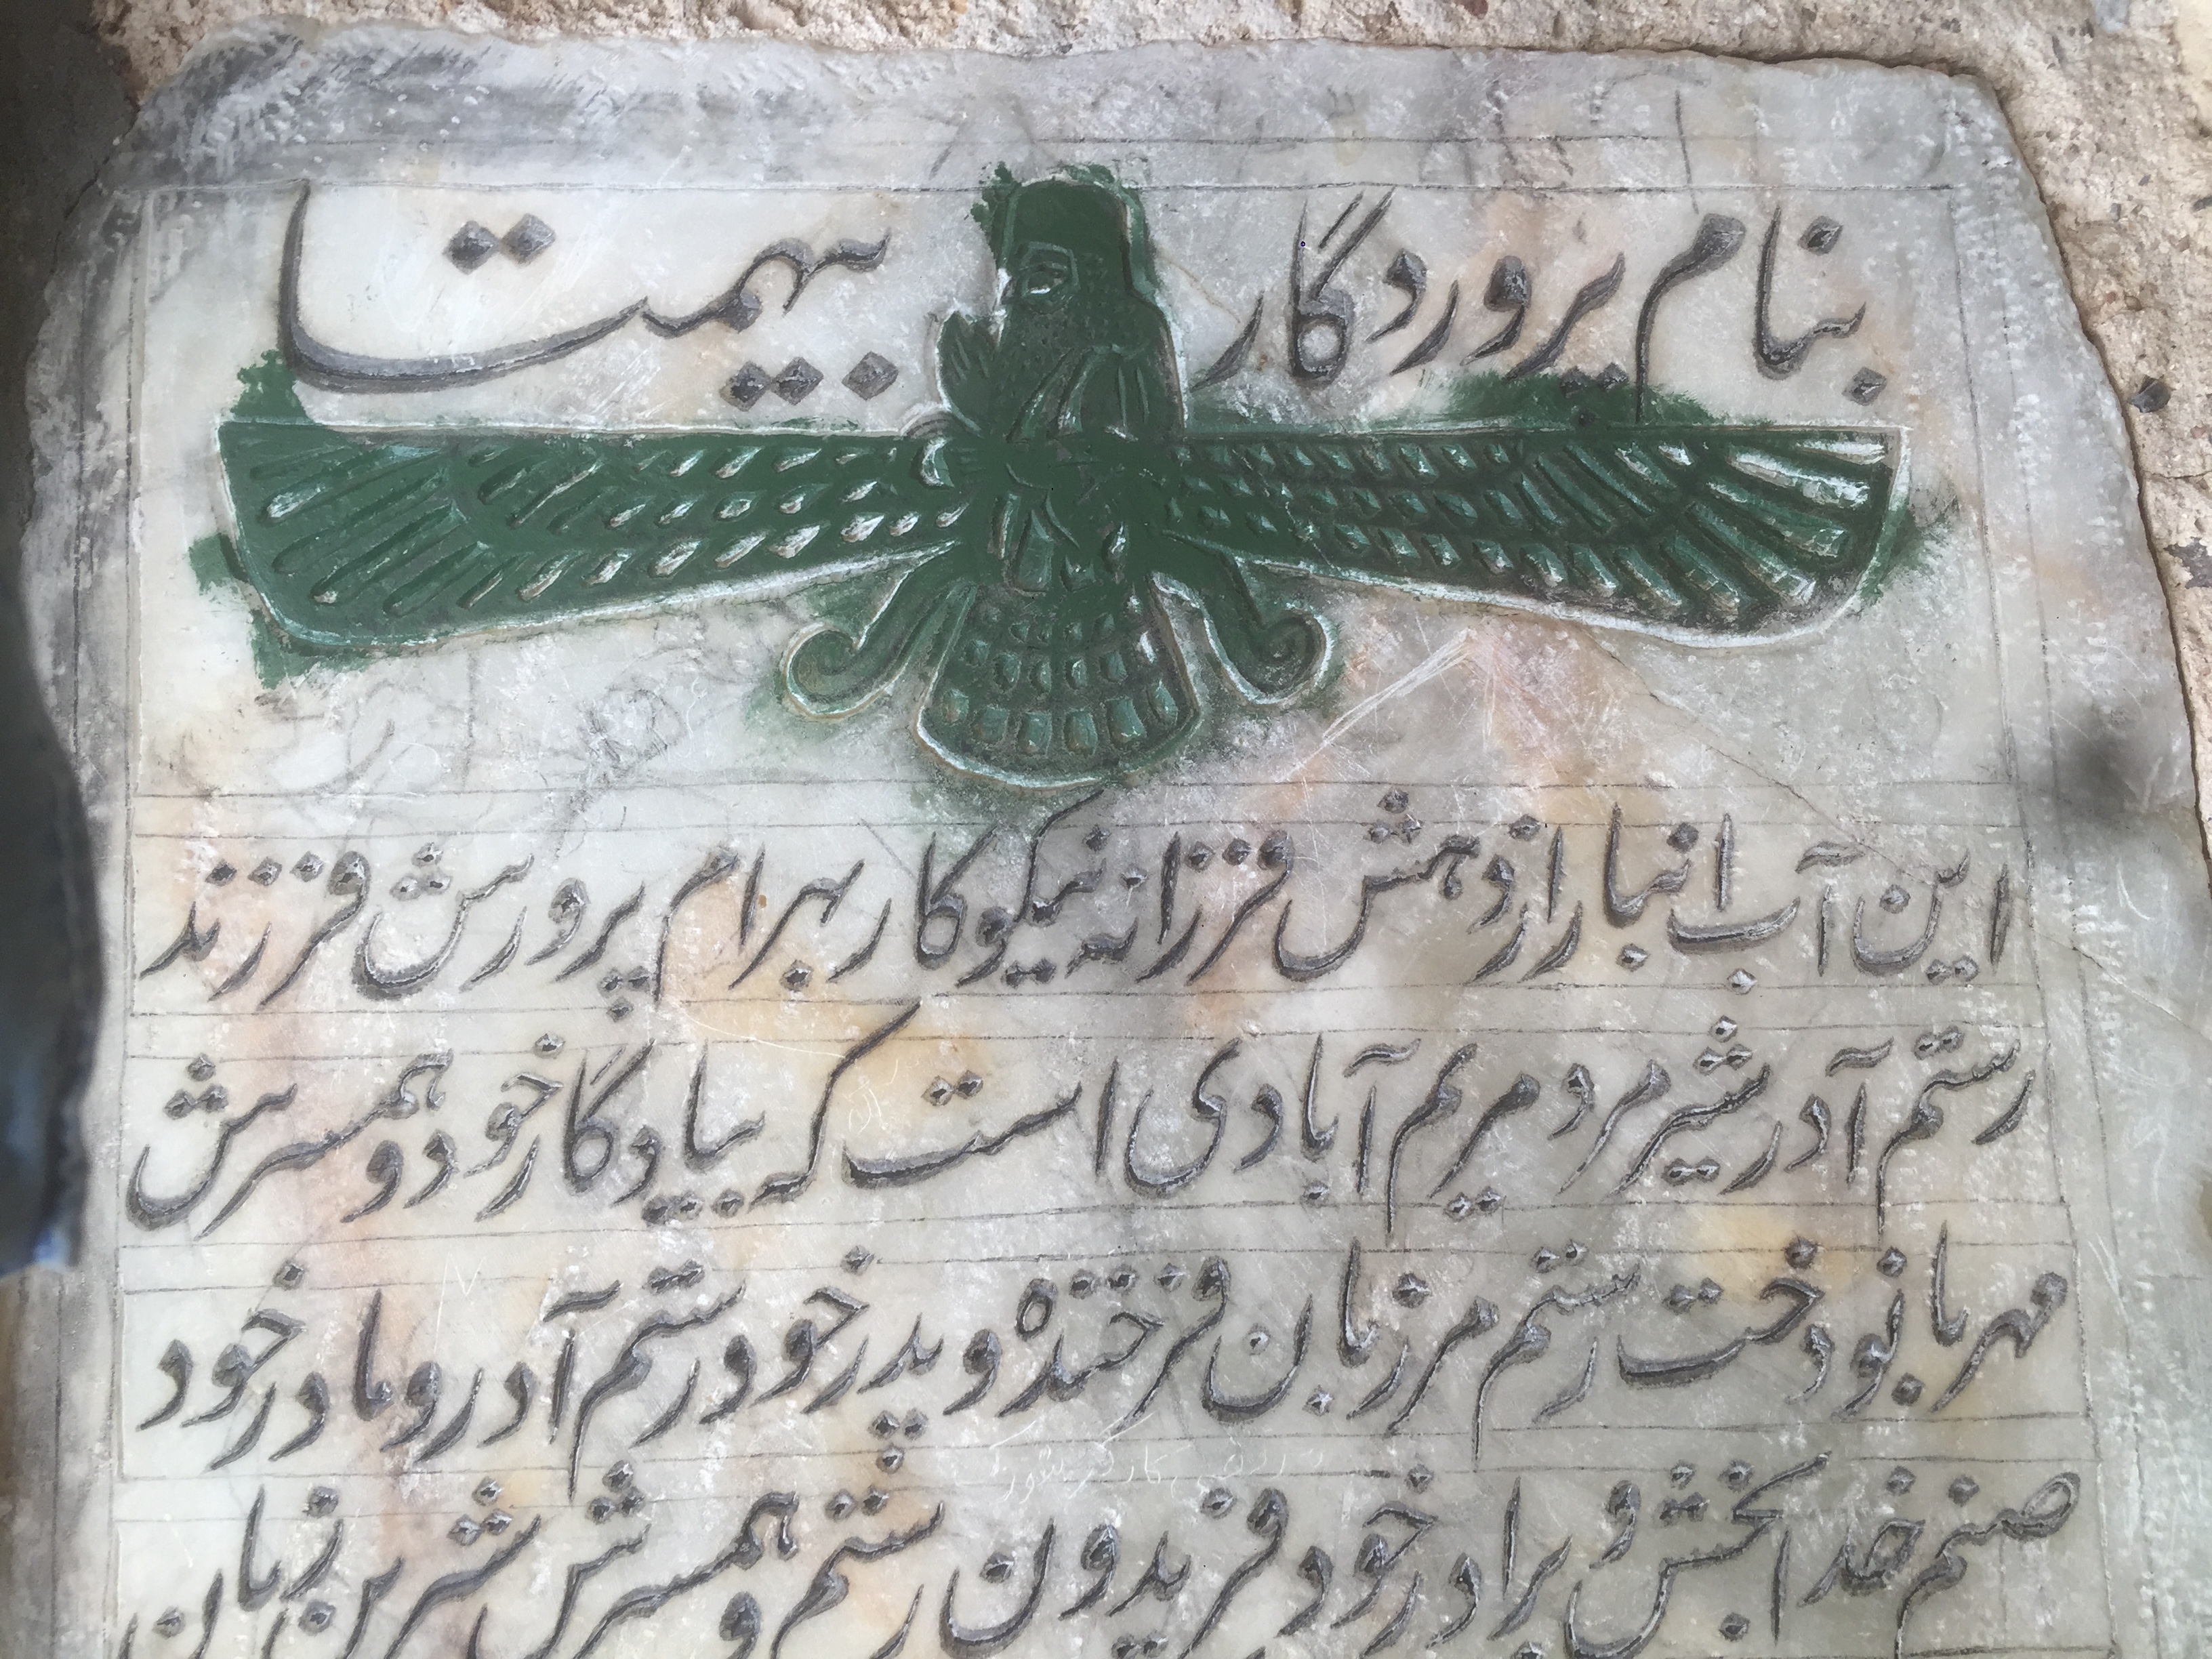 بنام پروردگار بیهمتا
این آب انبار از دهش فرزانه نیکوکار بهرام پرورش فرزند
رستم آدر شیرمرد مریم آبادی است که بیادگار خود و همسرش
مهربانو دخت رستم مرزبان فرخنده و پدر خود رستم آدر و مادر خود
صنم خدابخش و برادر خود فریدون رستم و همسرش شیرین زبان